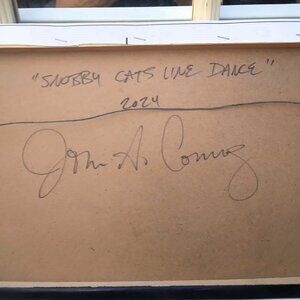 "SNOBBY CATS LINE DANCE"
2024
John A.